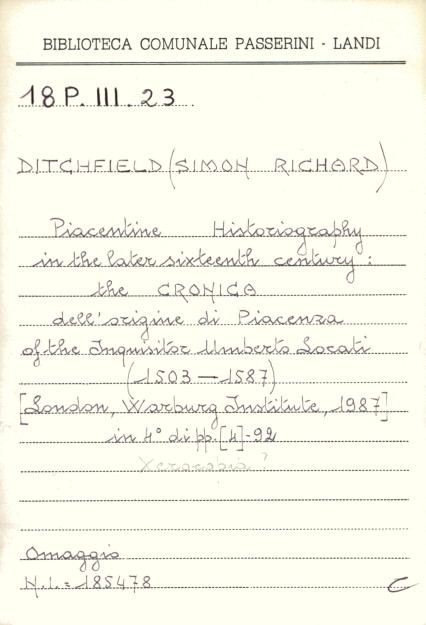 BIBLIOTECA COMUNALE PASSERINI - LANDI
18 P. III. 23
DITCHFIELD (SIMON RICHARD)
Piacentine Historiography
in the later sixteenth century :
the CRONICA
dell'origine di Piacenza
of the Inquisitor Umberto Locati
(1503 — 1587)
[London, Warburg Institute, 1987]
in 4° di pp. [4]-92
Xerocopia ?
Omaggio
N.I. = 185478
C